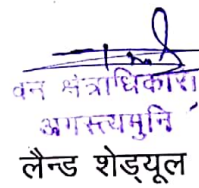 वन क्षेत्राधिकारी
अगस्त्यमुनि
लैन्ड शेड्यूल